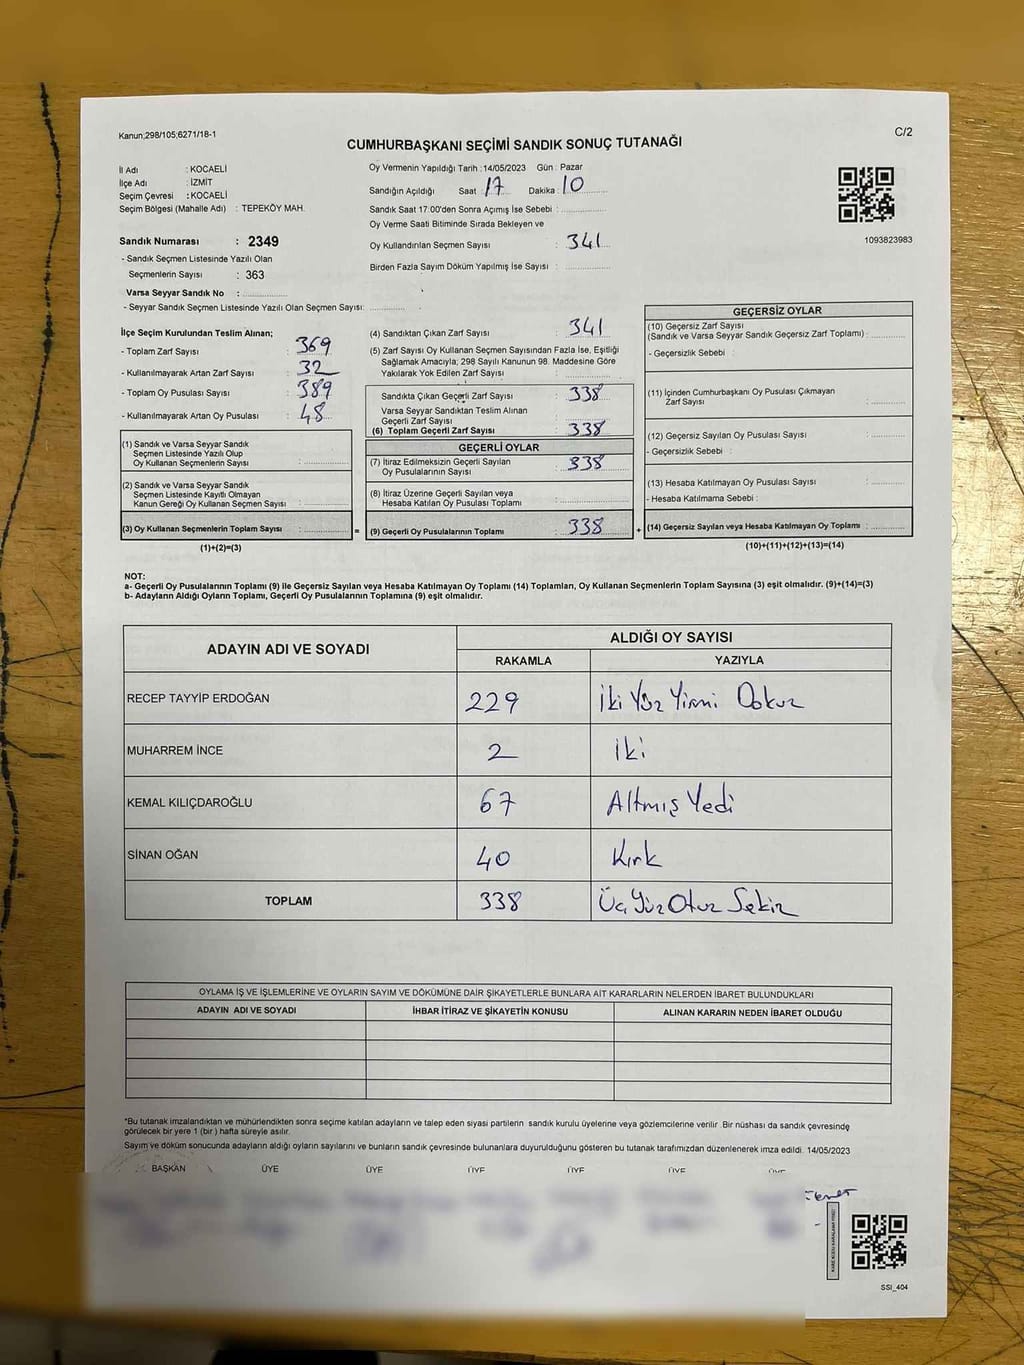 Kanun;298/105;6271/18-1
C/2
CUMHURBAŞKANI SEÇİMİ SANDIK SONUÇ TUTANAĞI
İl Adı : KOCAELİ
İlçe Adı : İZMİT
Seçim Çevresi : KOCAELİ
Seçim Bölgesi (Mahalle Adı) : TEPEKÖY MAH.
Sandık Numarası : 2349
- Sandık Seçmen Listesinde Yazılı Olan
Seçmenlerin Sayısı : 363
Varsa Seyyar Sandık No :
- Seyyar Sandık Seçmen Listesinde Yazılı Olan Seçmen Sayısı:
Oy Vermenin Yapıldığı Tarih : 14/05/2023 Gün : Pazar
Sandığın Açıldığı Saat : 17 Dakika : 10
Sandık Saat 17:00'den Sonra Açımış İse Sebebi :
Oy Verme Saati Bitiminde Sırada Bekleyen ve
Oy Kullandırılan Seçmen Sayısı : 341
Birden Fazla Sayım Döküm Yapılmış İse Sayısı :
1093823983
İlçe Seçim Kurulundan Teslim Alınan;
- Toplam Zarf Sayısı : 369
- Kullanılmayarak Artan Zarf Sayısı : 32
- Toplam Oy Pusulası Sayısı : 389
- Kullanılmayarak Artan Oy Pusulası : 48
(1) Sandık ve Varsa Seyyar Sandık
Seçmen Listesinde Yazılı Olup
Oy Kullanan Seçmenlerin Sayısı :
(2) Sandık ve Varsa Seyyar Sandık
Seçmen Listesinde Kayıtlı Olmayan
Kanun Gereği Oy Kullanan Seçmen Sayısı :
(3) Oy Kullanan Seçmenlerin Toplam Sayısı :
(1)+(2)=(3)
=
(4) Sandıktan Çıkan Zarf Sayısı : 341
(5) Zarf Sayısı Oy Kullanan Seçmen Sayısından Fazla İse, Eşitliği
Sağlamak Amacıyla; 298 Sayılı Kanunun 98. Maddesine Göre
Yakılarak Yok Edilen Zarf Sayısı :
Sandıkta Çıkan Geçerli Zarf Sayısı : 338
Varsa Seyyar Sandıktan Teslim Alınan
Geçerli Zarf Sayısı :
(6) Toplam Geçerli Zarf Sayısı : 338
GEÇERLİ OYLAR
(7) İtiraz Edilmeksizin Geçerli Sayılan
Oy Pusulalarının Sayısı : 338
(8) İtiraz Üzerine Geçerli Sayılan veya
Hesaba Katılan Oy Pusulası Toplamı :
(9) Geçerli Oy Pusulalarının Toplamı : 338
+
GEÇERSİZ OYLAR
(10) Geçersiz Zarf Sayısı
(Sandık ve Varsa Seyyar Sandık Geçersiz Zarf Toplamı) :
- Geçersizlik Sebebi :
(11) İçinden Cumhurbaşkanı Oy Pusulası Çıkmayan
Zarf Sayısı :
(12) Geçersiz Sayılan Oy Pusulası Sayısı :
- Geçersizlik Sebebi :
(13) Hesaba Katılmayan Oy Pusulası Sayısı :
- Hesaba Katılmama Sebebi :
(14) Geçersiz Sayılan veya Hesaba Katılmayan Oy Toplamı :
(10)+(11)+(12)+(13)=(14)
NOT:
a- Geçerli Oy Pusulalarının Toplamı (9) ile Geçersiz Sayılan veya Hesaba Katılmayan Oy Toplamı (14) Toplamları, Oy Kullanan Seçmenlerin Toplam Sayısına (3) eşit olmalıdır. (9)+(14)=(3)
b- Adayların Aldığı Oyların Toplamı, Geçerli Oy Pusulalarının Toplamına (9) eşit olmalıdır.
ADAYIN ADI VE SOYADI
ALDIĞI OY SAYISI
RAKAMLA YAZIYLA
RECEP TAYYİP ERDOĞAN 229 İki Yüz Yirmi Dokuz
MUHARREM İNCE 2 İki
KEMAL KILIÇDAROĞLU 67 Altmış Yedi
SİNAN OĞAN 40 Kırk
TOPLAM 338 Üç Yüz Otuz Sekiz
OYLAMA İŞ VE İŞLEMLERİNE VE OYLARIN SAYIM VE DÖKÜMÜNE DAİR ŞİKAYETLERLE BUNLARA AİT KARARLARIN NELERDEN İBARET BULUNDUKLARI
ADAYIN ADI VE SOYADI İHBAR İTİRAZ VE ŞİKAYETİN KONUSU ALINAN KARARIN NEDEN İBARET OLDUĞU
*Bu tutanak imzalandıktan ve mühürlendikten sonra seçime katılan adayların ve talep eden siyasi partilerin sandık kurulu üyelerine veya gözlemcilerine verilir. Bir nüshası da sandık çevresinde
görülecek bir yere 1 (bir) hafta süreyle asılır.
Sayım ve döküm sonucunda adayların aldığı oyların sayılarını ve bunların sandık çevresinde bulunanlara duyurulduğunu gösteren bu tutanak tarafımızdan düzenlenerek imza edildi. 14/05/2023
BAŞKAN ÜYE ÜYE ÜYE ÜYE ÜYE ÜYE
SSI_404